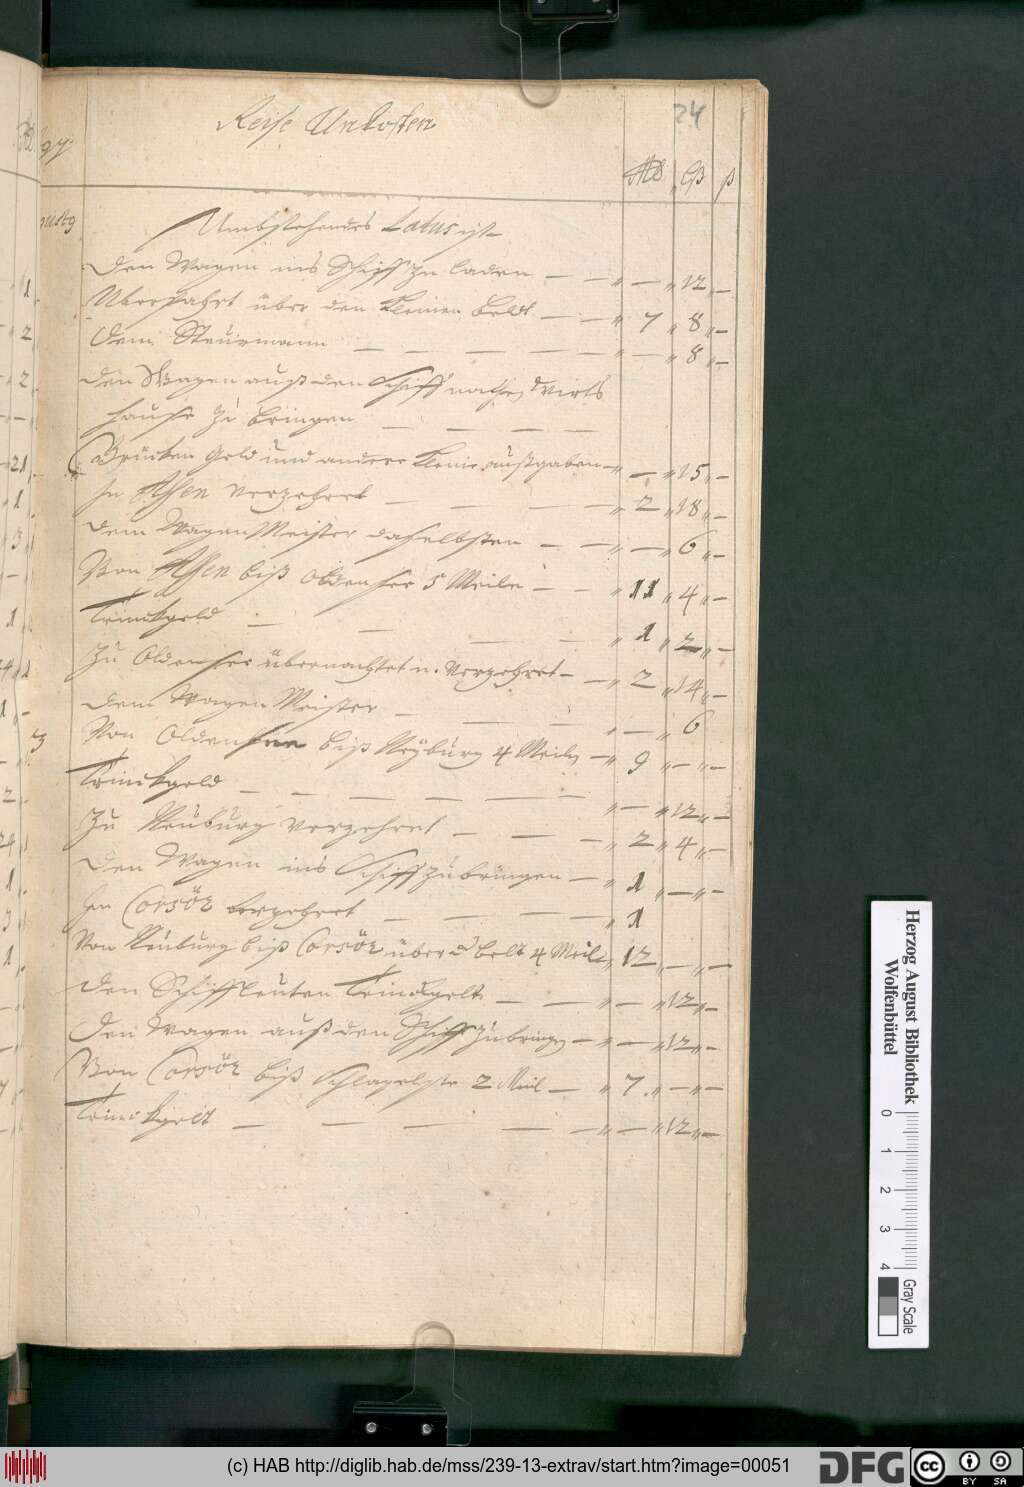 24
Reise Unkosten
Umbstehendes Latus ist
Den Wagen ins Schiff zu laden — — „ — „ 12 „ —
Uberfahrt über den Kleinen Beldt — — „ 7 „ 8 „ —
Dem Steürmann — — — — — „ — „ 8 „ —
Den Wagen auß den Schiff nach Wirts
hause zu bringen — — — —
Brücken Geld und andere kleine außgaben — „ — „ 15 „ —
In Assen verzehret — — — „ 2 „ 18 „ —
dem WagenMeister daselbsten — — „ — „ 6 „ —
Von Assen biß Oldensee 5 Meile — — „ 11 „ 4 „ —
Trinckgeld — — — — „ 1 „ 2 „ —
Zu Oldensee übernachtet u. verzehret — — „ 2 „ 14 „ —
dem Wagen Meister — — — „ — „ 6
Von Oldensee biß Neyburg 4 Meile — „ 9 „ — „ —
Trinckgeld — — — — — — „ — „ 12 „ —
Zu Neuburg verzehret — — — „ 2 „ 4 „ —
Den Wagen ins Schiff zu bringen — „ 1 „ — „ —
In Corsör verzehret — — — — „ 1
Von Neuburg biß Corsör über d Belt 4 Meile „ 12 „ — „ —
Den Schiffleuten Trinckgelt — — — „ — „ 12 „ —
Den Wagen auß den Schiff zu bringen — „ — „ 12 „ —
Von Corsör biß Schlagelse 2 Meil — „ 7 „ — „ —
Trinckgeldt — — — — — „ — „ 12 „ —
Herzog August Bibliothek
Wolfenbüttel
0 1 2 3 4
Gray Scale
(c) HAB http://diglib.hab.de/mss/239-13-extrav/start.htm?image=00051
DFG
cc BY SA